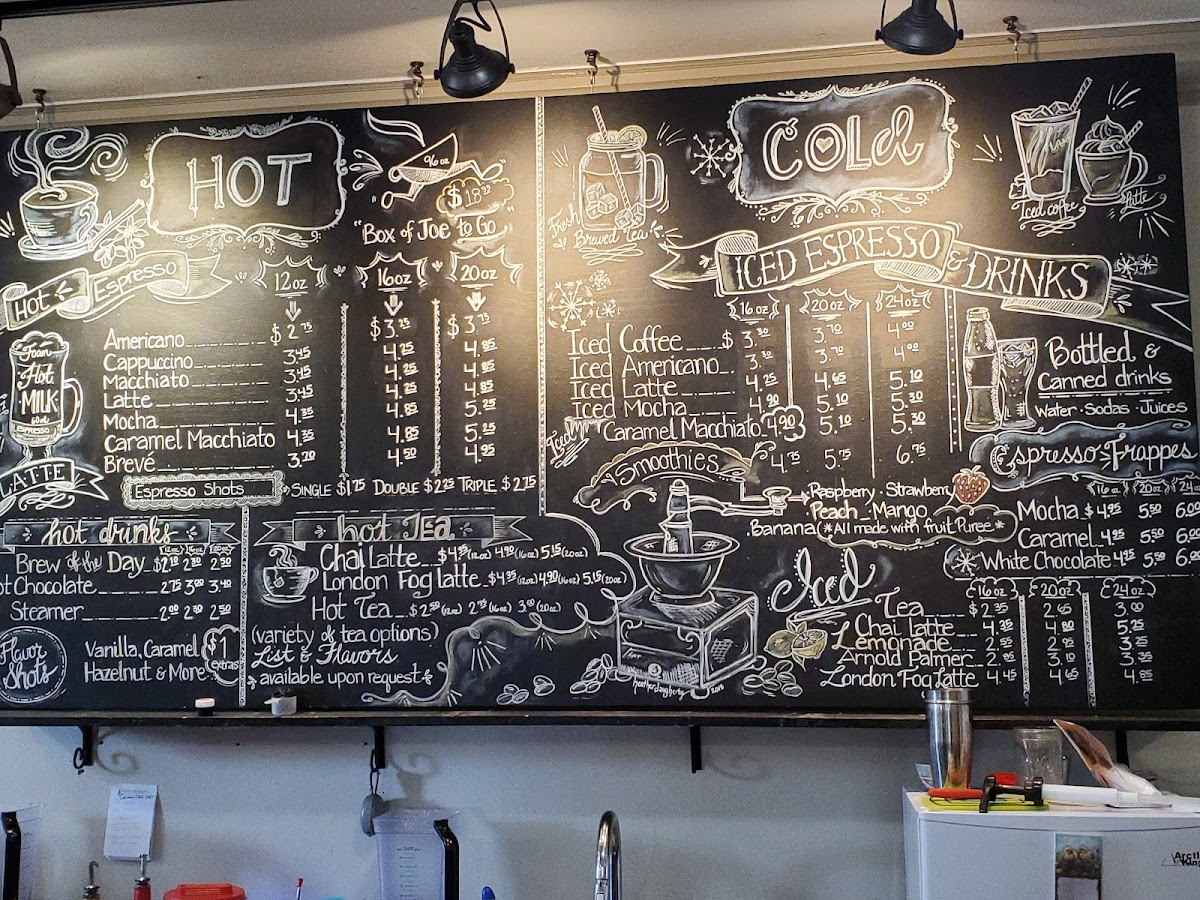 HOT
96 oz
$18.99
"Box of Joe to Go"
Hot Espresso
12oz 16oz 20oz
Americano $2.75 $3.25 $3.75
Cappuccino 3.45 4.25 4.85
Macchiato 3.45 4.25 4.85
Latte 3.45 4.25 4.85
Mocha 4.35 4.85 5.25
Caramel Macchiato 4.35 4.85 5.25
Brevé 3.70 4.50 4.95
Foam
Hot
MILK
ESPRESSO
LATTE
Espresso Shots SINGLE $1.75 DOUBLE $2.25 TRIPLE $2.75
hot drinks
12oz 16oz 20oz
Brew of the Day $2.10 2.30 2.50
ot Chocolate 2.75 3.00 3.40
Steamer 2.00 2.30 2.50
Flavor Shots
Vanilla, Caramel
Hazelnut & More
$1 extras
hot TEA
Chai Latte $4.35 (12oz) 4.90 (16oz) 5.15 (20oz)
London Fog latte $4.35 (12oz) 4.90 (16oz) 5.15 (20oz)
Hot Tea $2.50 (12oz) 2.75 (16oz) 3.00 (20oz)
(variety of tea options)
List & Flavors
available upon request
COLd
Fresh
Brewed Tea
Iced coffee
Latte
ICED ESPRESSO & DRINKS
16oz 20oz 24oz
Iced Coffee $3.30 3.70 4.00
Iced Americano 3.30 3.70 4.00
Iced Latte 4.25 4.65 5.10
Iced Mocha 4.90 5.10 5.30
Iced Caramel Macchiato 4.90 5.10 5.30
Smoothies 4.75 5.75 6.75
Raspberry · Strawberry
Peach · Mango
Banana (*All made with fruit Puree*)
Bottled &
Canned drinks
Water · Sodas · Juices
Espresso Frappes
16oz 20oz 24oz
Mocha $4.95 5.50 6.00
Caramel 4.95 5.50 6.00
White Chocolate 4.95 5.50 6.00
Iced
16oz 20oz 24oz
Tea $2.35 2.65 3.00
Chai latte 4.35 4.80 5.25
Lemonade 2.55 2.95 3.25
Arnold Palmer 2.85 3.10 3.35
London Fog latte 4.45 4.65 4.85
heatherdaugherty 2016